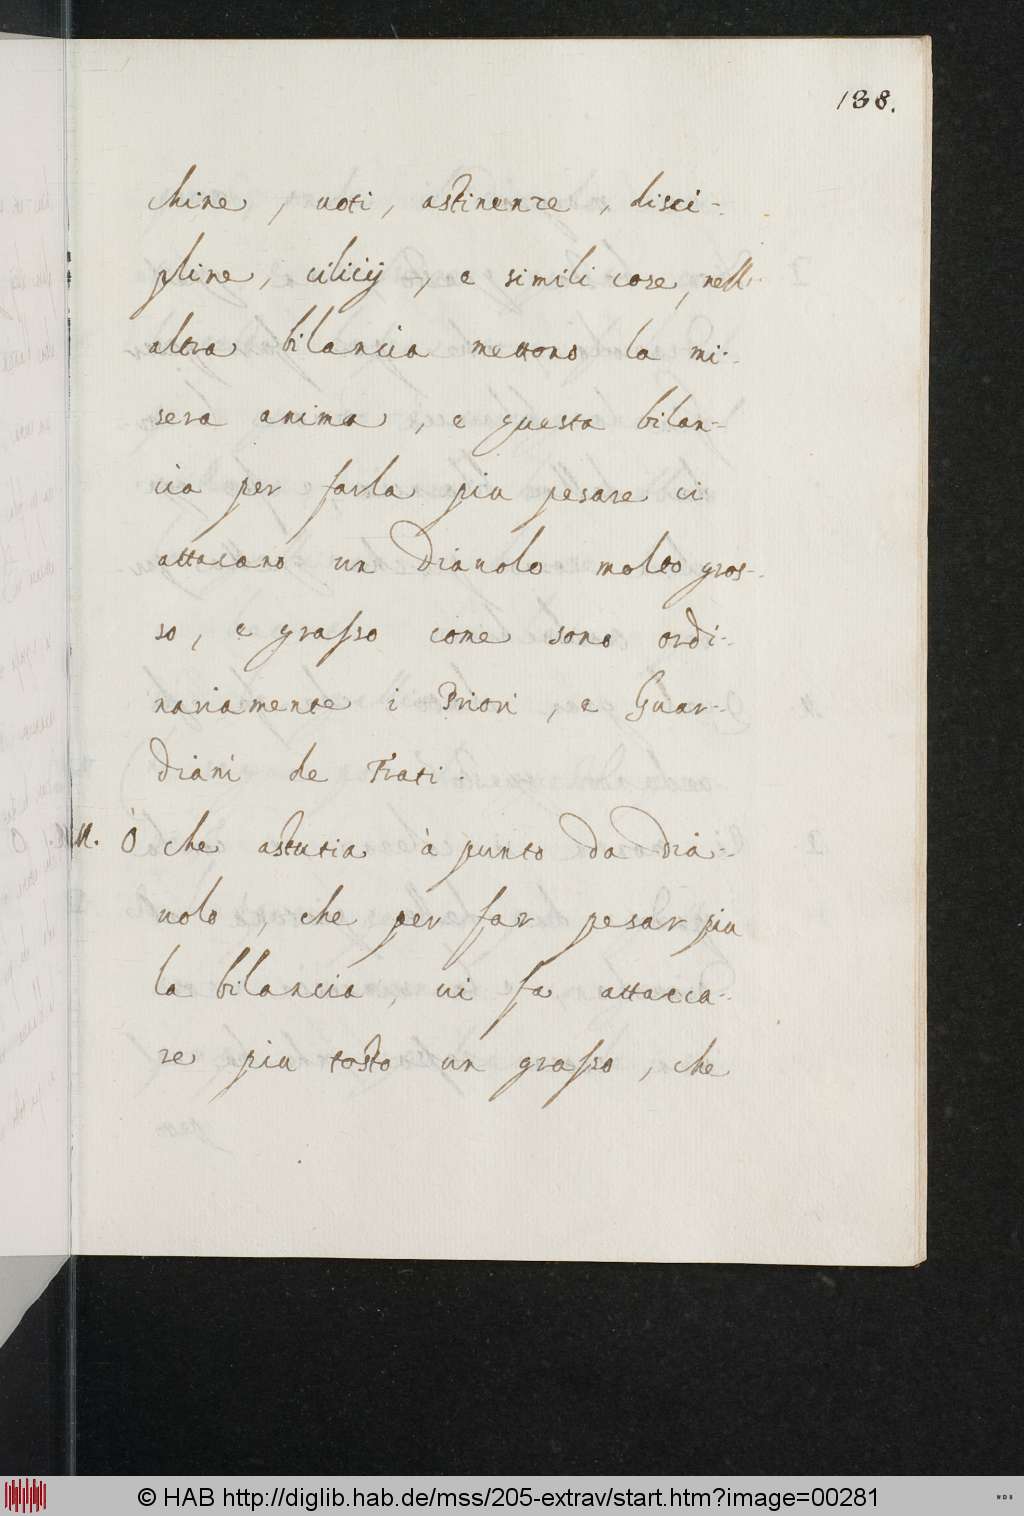 138.
chine, uoti, astinenze, disci-
pline, cilicij, e simili cose, nell'
altra bilancia mettono la mi-
sera anima, e questa bilan-
cia per farla piu pesare ci
attacano un diauolo molto gros-
so, e grasso come sono ordi-
nariamente i Priori, e Guar-
diani de Frati.
M. Ó che astutia à punto da dia-
uolo, che per far pesar piu
la bilancia, ui fa attacca-
re piu tosto un grasso, che
© HAB http://diglib.hab.de/mss/205-extrav/start.htm?image=00281